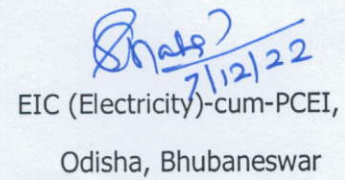 7/12/22
EIC (Electricity)-cum-PCEI,
Odisha, Bhubaneswar